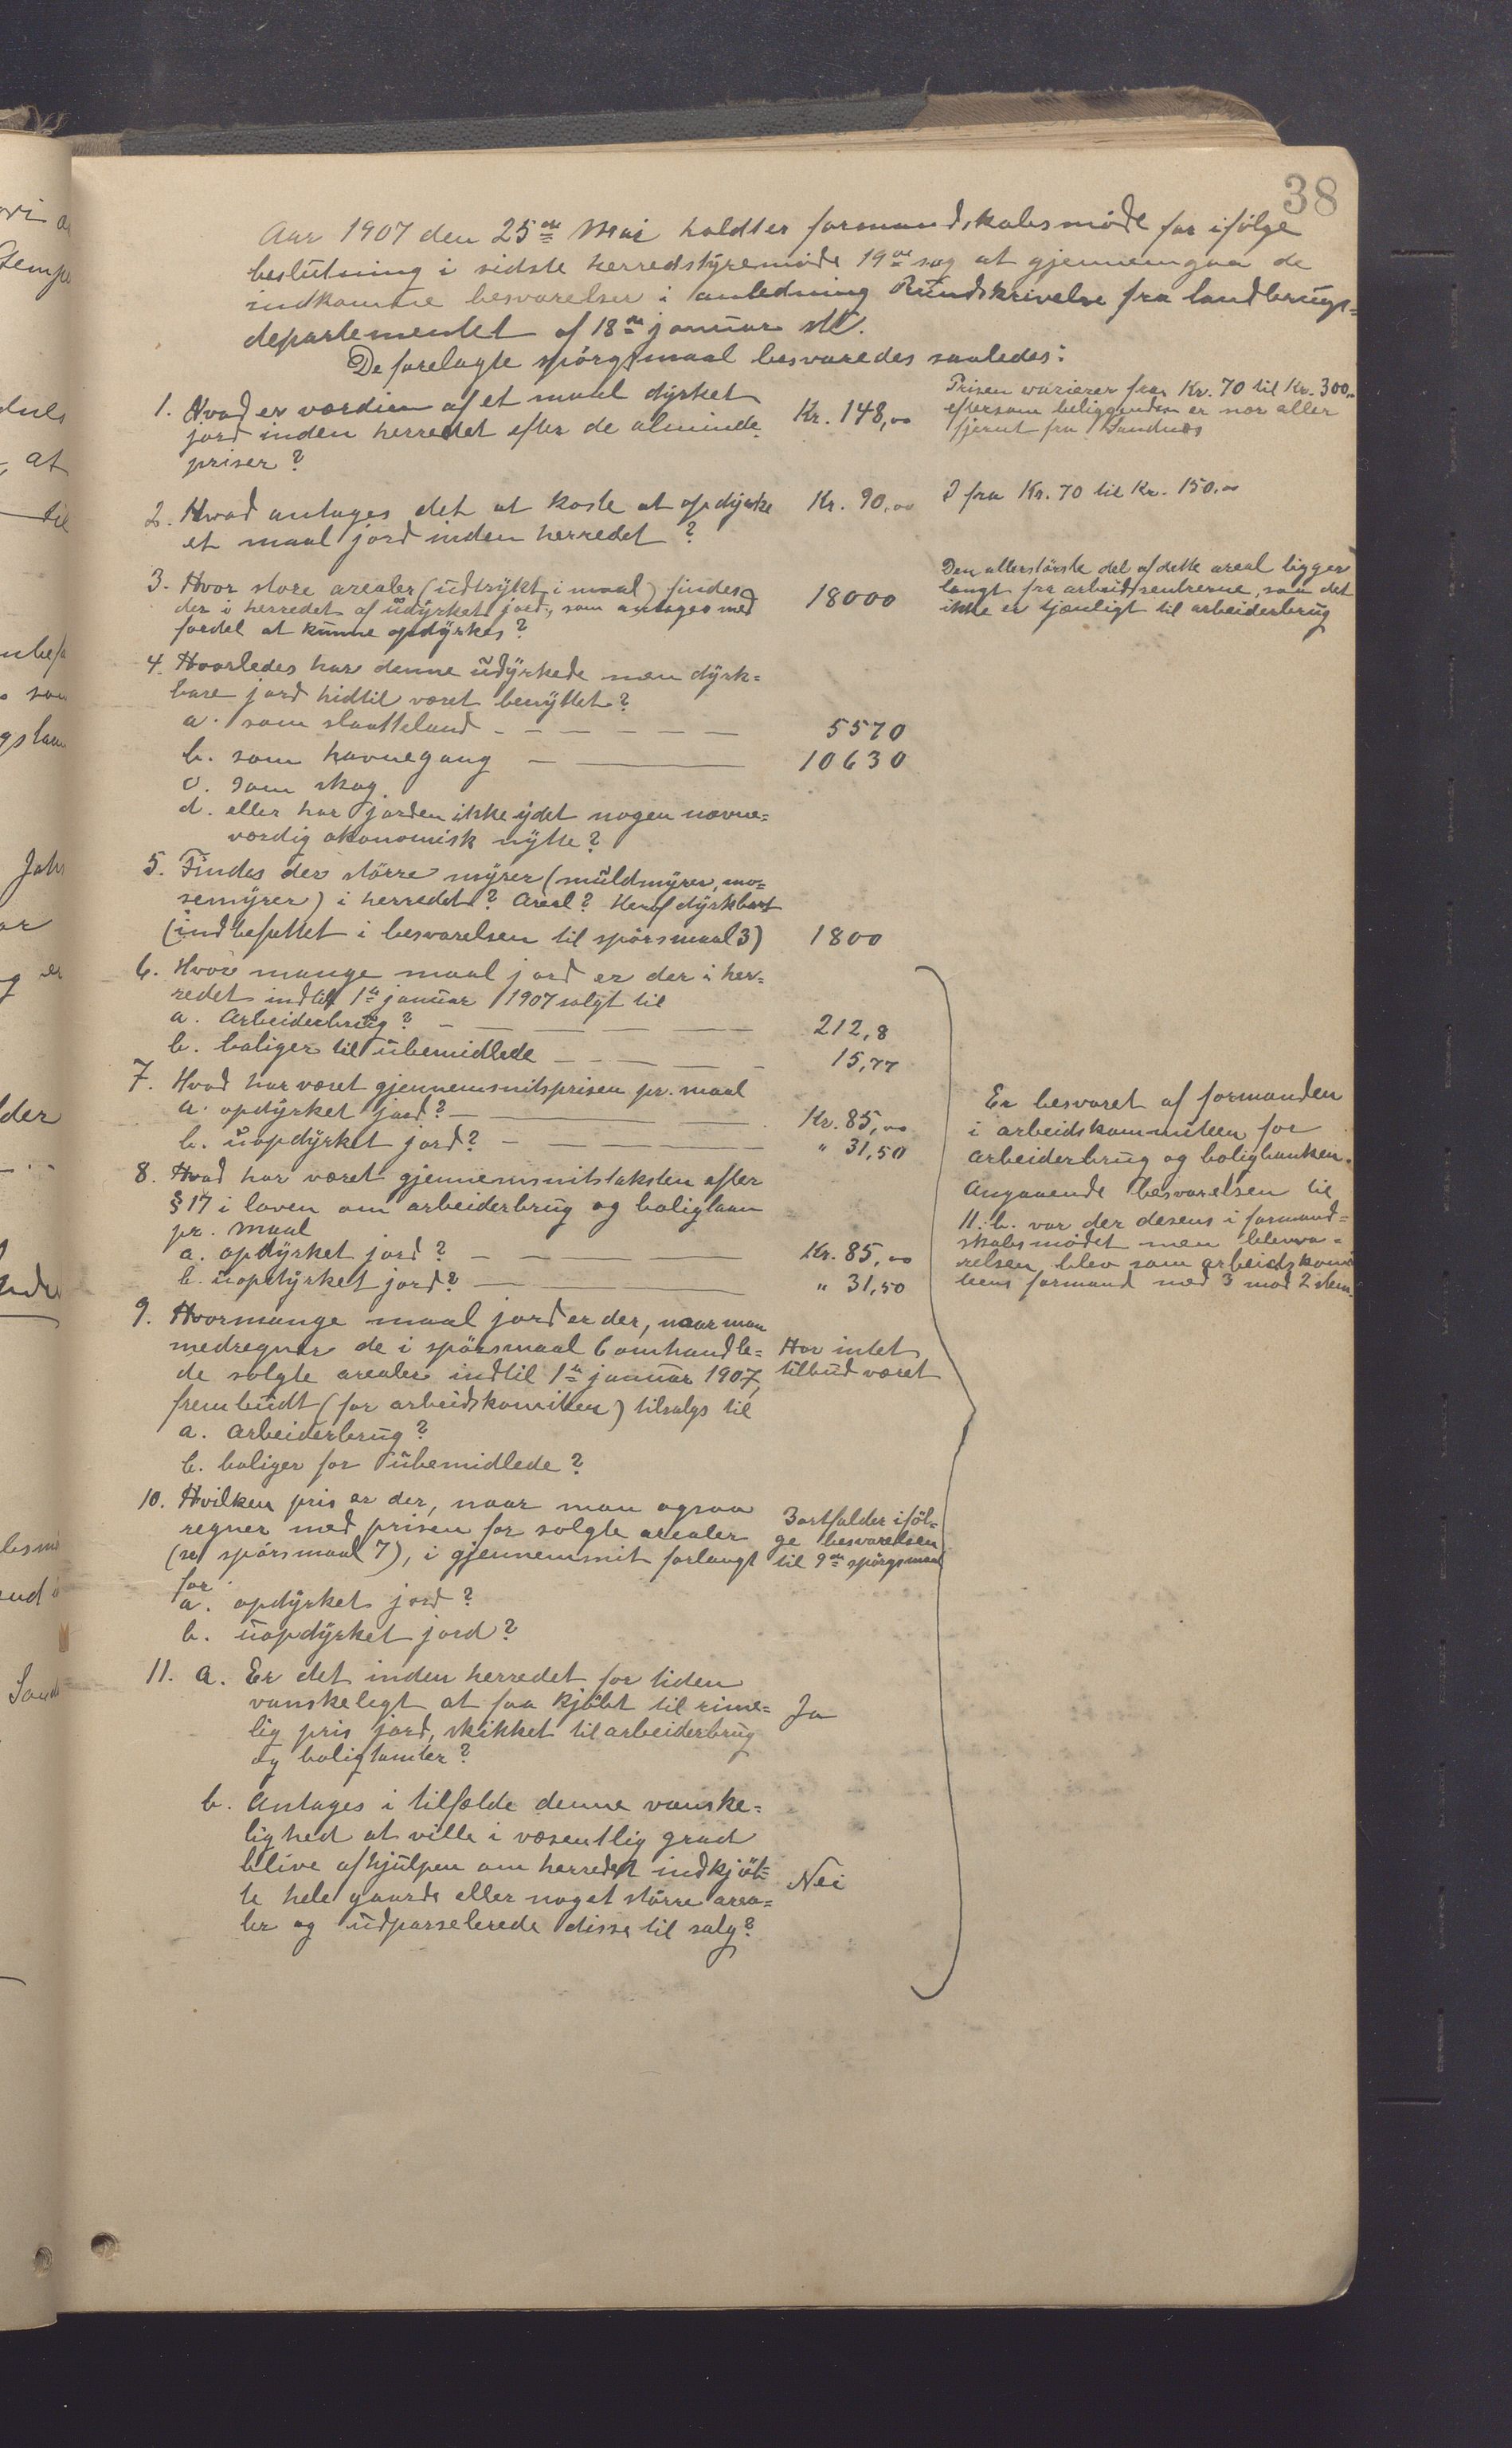 38
Aar 1907 den 25de Mai holdtes formandskabsmøde for ifølge
beslutning i sidste herredstyremøde 19de sag at gjennemgaa de
indkomne besvarelser i anledning Rundskrivelse fra landbrugs=
departementet af 18de januar stl.
De forelagte spörgsmaal besvaredes saaledes:
1. Hvad er værdien af et maal dyrket
jord inden herredet efter de alminde.
priser?
Kr. 148,00
Prisen varierer fra Kr. 70 til Kr. 300,00
eftersom beliggenden er nær eller
fjernt fra Sandnæs
2. Hvad antages det at koste at opdyrke
et maal jord inden herredet?
Kr. 90,00
I fra Kr. 70 til Kr. 150,00
3. Hvor store arealer (udtrykt i maal) findes
der i herredet af udyrket jord, som antages med
fordel at kunne opdyrkes?
18000
Den allerstörste del af dette areal ligger
langt fra arbeidssentrerne, saa det
ikke er tjænligt til arbeiderbrug
4. Hvorledes har denne udyrkede men dyrk=
bare jord hidtil været benyttet?
a. som slaatteland - - - - - -
5570
b. som havnegang - -
10630
c. som skog.
d. eller har jorden ikke ydet nogen nævne=
værdig økonomisk nytte?
5. Findes der större myrer (muldmyrer, mo=
semyrer) i herredet? Areal? Heraf dyrkbart
(indbefattet i besvarelsen til spörsmaal 3)
1800
6. Hvor mange maal jord er der i her=
redet indtil 1ste januar 1907 solgt til
a. Arbeiderbrug? - - - - - -
212,8
b. boliger til ubemidlede - - - - -
15,77
7. Hvad har været gjennemsnitsprisen pr. maal
a. opdyrket jord? - - -
Kr. 85,00
b. uopdyrket jord? - - -
" 31,50
8. Hvad har været gjennemsnitstaksten efter
§ 17 i loven om arbeiderbrug og boliglaan
pr. maal
a. opdyrket jord? - - -
Kr. 85,00
b. uopdyrket jord? - -
" 31,50
Er besvaret af formanden
i arbeidskommiteen for
arbeiderbrug og boligbanken.
Angaaende besvarelsen til
11. b. var der desens i formand=
skabsmødet men
relsen blev som arbeidskomi
teens formand med 3 mod 2 stem.
9. Hvormange maal jord er der, naar man
medregner de i spörsmaal 6 omhandle=
de solgte arealer indtil 1ste januar 1907,
frembudt (for arbeidskomiteen) tilsalgs til
a. Arbeiderbrug?
b. boliger for ubemidlede?
Har intet
tilbud været
10. Hvilken pris er der, naar man ogsaa
regner med prisen for solgte arealer
(se spörsmaal 7), i gjennemsnit forlangt
for
a. opdyrket jord?
b. uopdyrket jord?
Bortfalder iföl=
ge besvarelsen
til 9de spörgsmaal
11. a. Er det inden herredet for tiden
vanskeligt at faa kjöbt til rime=
lig pris jord, skikket til arbeiderbrug
og boligtomter?
Ja
b. Antages i tilfælde denne vanske=
lighed at ville i væsentlig grad
blive afhjulpen om herredet indkjöb=
te hele gaarde eller noget større area=
ler og udparselerede disse til salg?
Nei